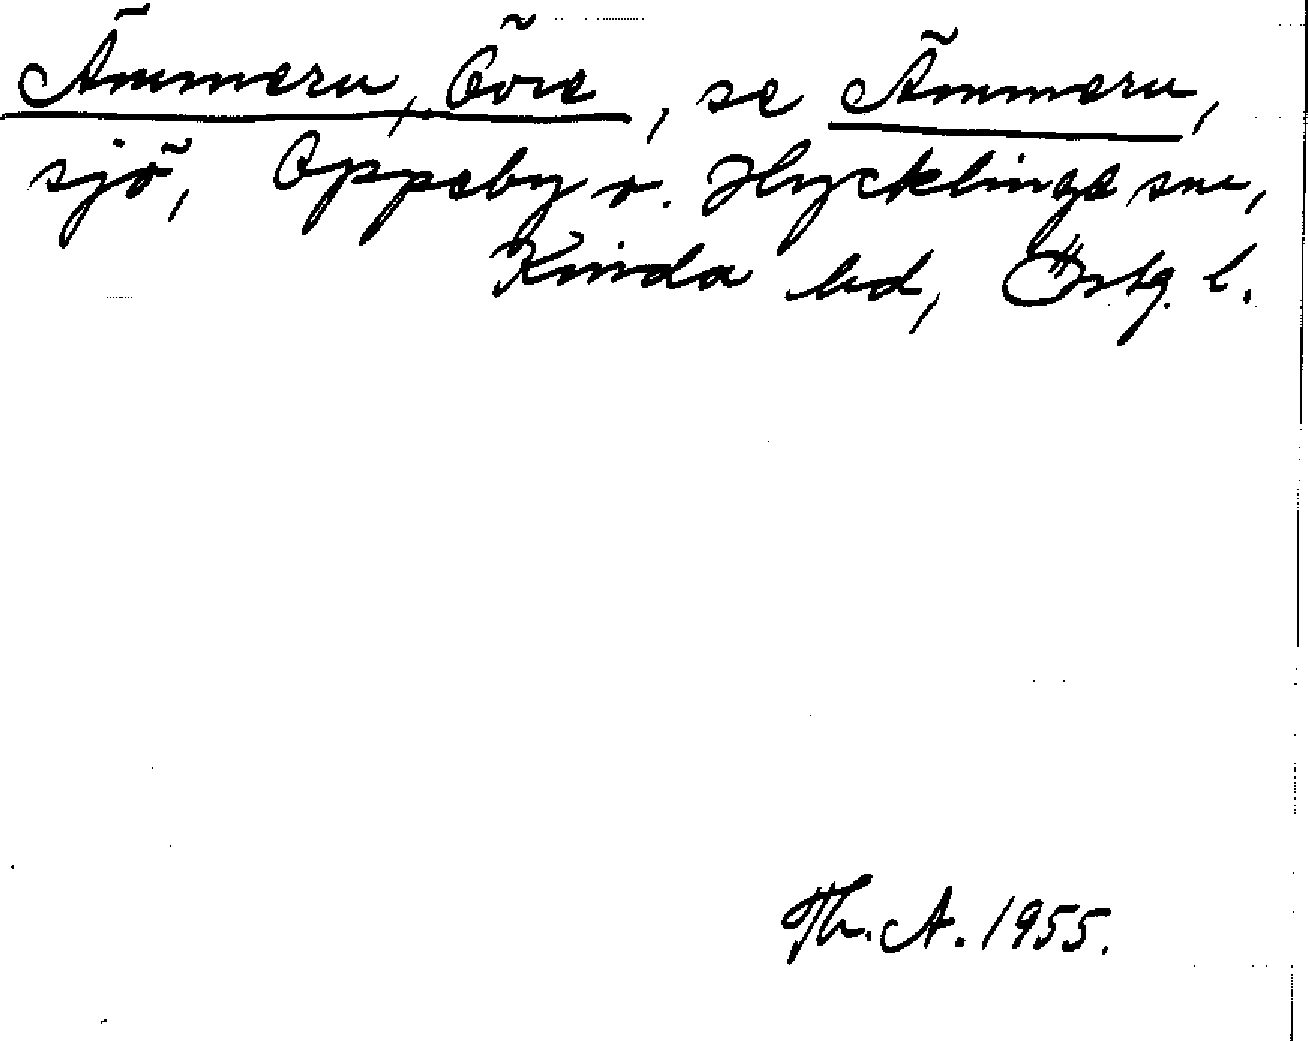 Ämmern, Övre, se Ämmern,
sjö, Oppeby o. Hycklinge snr,
Kinda hd, Östg. l.
Th. A. 1955.